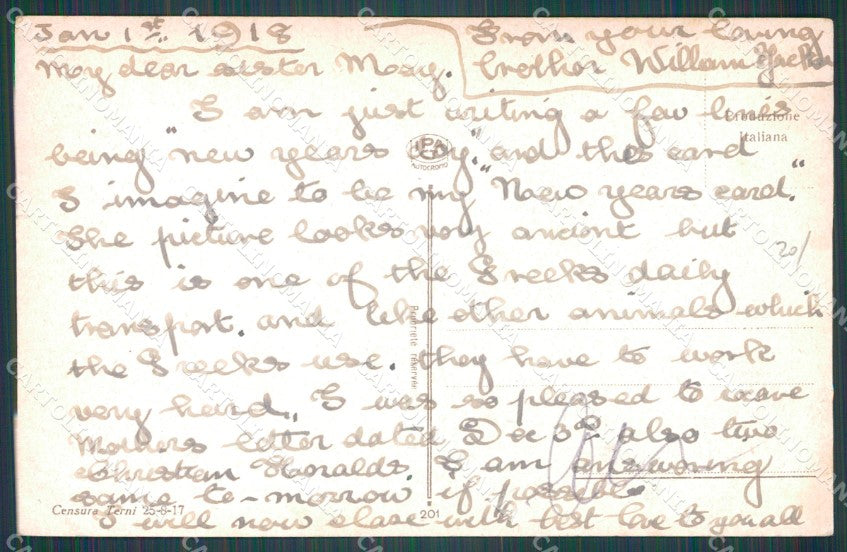 Jan 1st. 1918
From your loving
brother William
My dear sister May.
I am just writing a few lines
being "new years day", and this card
I imagine to be my "New years card."
The picture looks very ancient but
this is one of the Greeks daily
transport. and like other animals which
the Greeks use. they have to work
very hard. I was so pleased to have
Mothers letter dated Dec 3rd also two
Christian Heralds. I am answering
same to-morrow if possible.
I will now close with best love to you all
Produzione
Italiana
IPA
CT
AUTOCROMO
Proprieté reservée
20/
Censura Terni 25-8-17
201
CARTOLINOMANIA